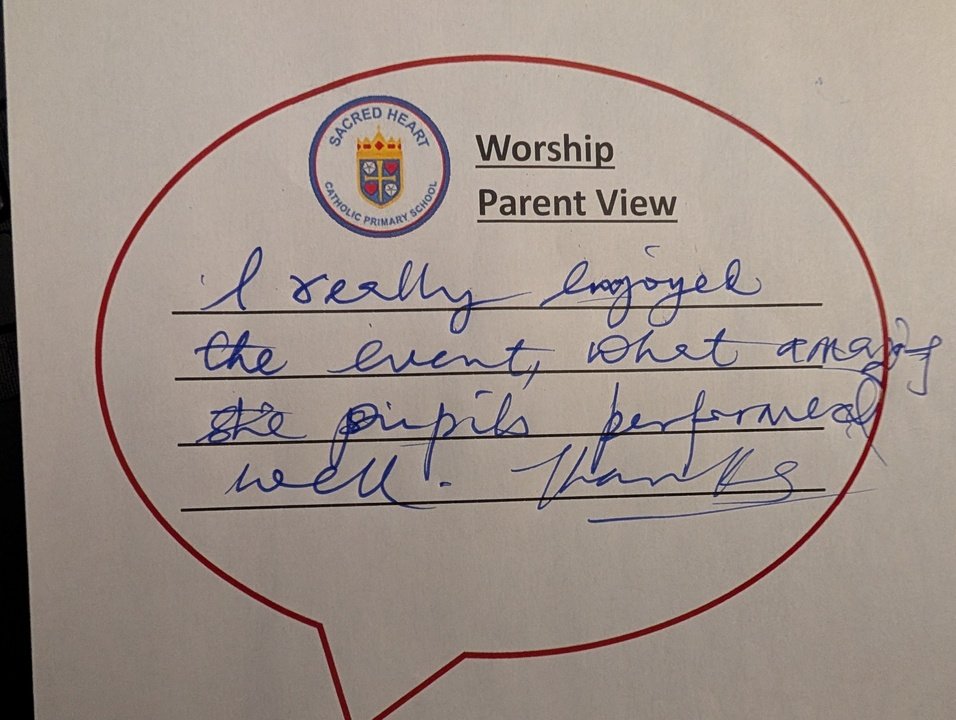 SACRED HEART
CATHOLIC PRIMARY SCHOOL
Worship
Parent View
I really enjoyed
the event, what amazing
the pupils performed
well. Thanks